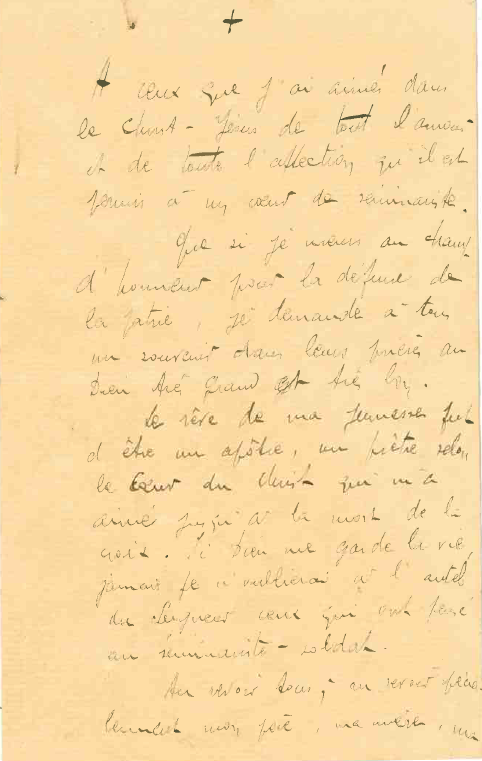 +
A ceux que j'ai aimés dans
le Christ - Jésus de tout l'amour
et de toute l'affection qu'il est
permis à un cœur de séminariste.
Que si je meurs au champ
d'honneur pour la défense de
la patrie, je demande à tous
un souvenir dans leurs prières au
Dieu très grand et très bon.
Le rêve de ma jeunesse fut
d'être un apôtre, un prêtre selon
le Cœur du Christ qui m'a
aimé jusqu'à la mort de la
croix. Si Dieu me garde la vie,
jamais je n'oublierai à l'autel
du Seigneur ceux qui ont pensé
au séminariste - soldat.
Au revoir tous, au revoir spécia-
lement mon père, ma mère, ma